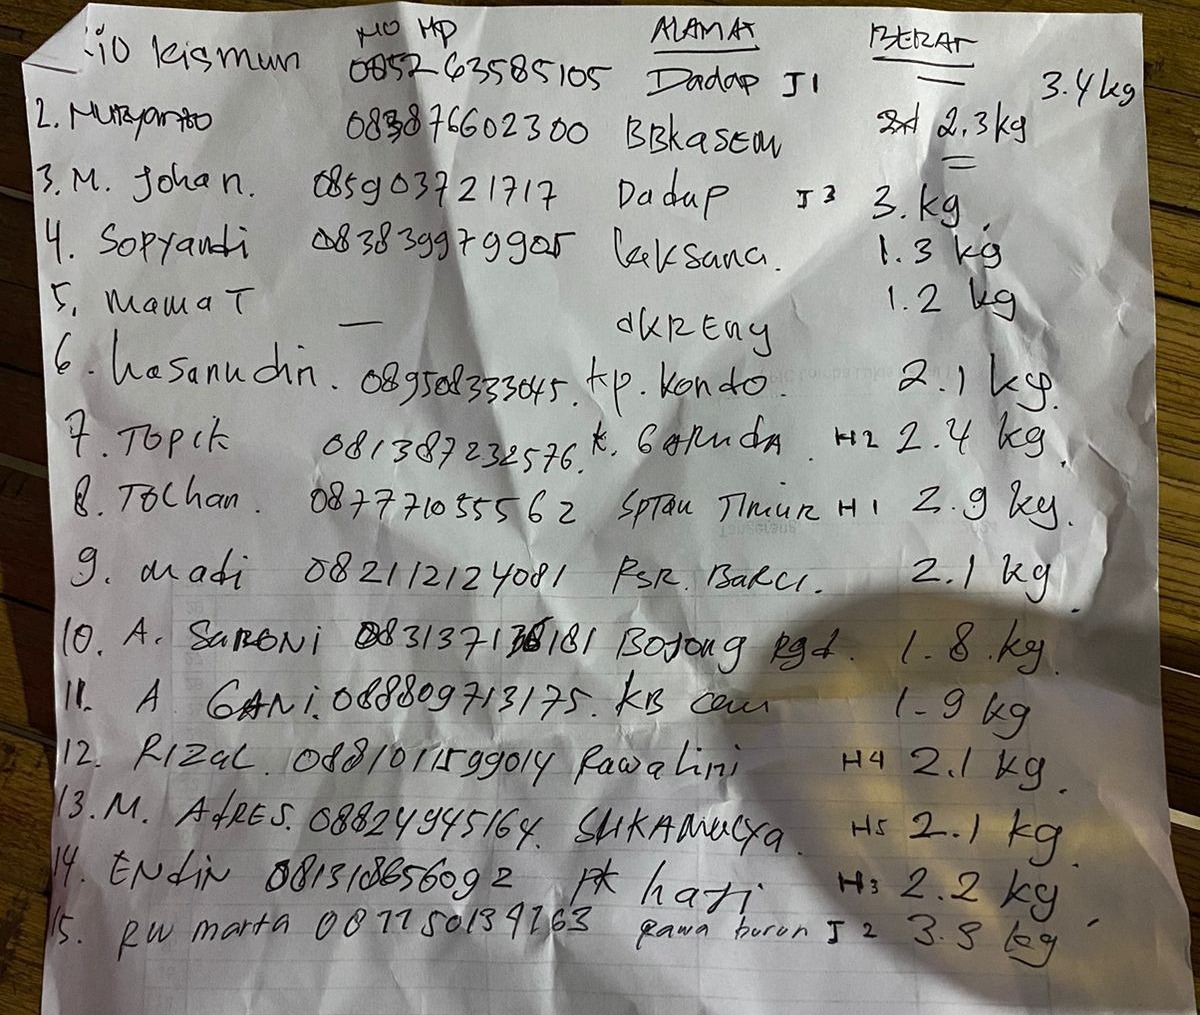 NO HP ALAMAT BERAT
Kismun 085263585105 Dadap J1 3.4 kg
2. 083876602300 BBkaSEM 2.3 kg
3. M. Johan. 085903721717 Dadap J3 3. kg.
4. Sopyandi 083839979905 1.3 kg
5. MamaT — dKRENg 1.2 kg
6. Hasanudin. 089508333045. kp. kondo. 2.1 kg.
7. TOPik 081387232576. k. GARUdA. H2 2.4 kg.
8. TOChan. 087771055562 SpTan TImuR H1 2.9 kg.
9. Madi 082112124081 PSR. BaRU. 2.1 kg.
10. A. SaRONi Bojong Rgd. 1.8.kg.
11. A GANi. 088809713175. KB 1.9 kg
12. RIZAL. 0881011599014 Rawalini H4 2.1 kg.
13. M. AdRES. 08824945164. SUKAMulyA. H5 2.1 kg.
14. ENdiN 081318656092 pk haji H3 2.2 kg.
15. RW marta Rawa buron J2 kg